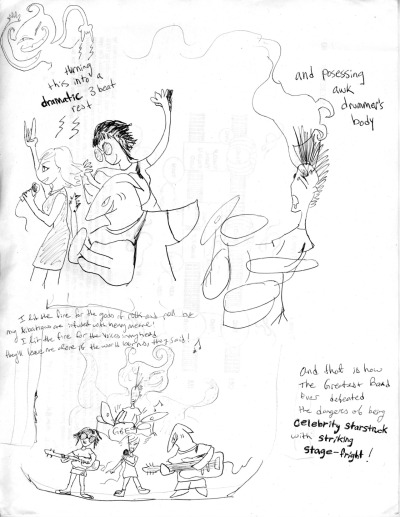 turning
this into a
dramatic 3 beat
rest
and posessing
awk
drummer's
body
I lit the fire for the gods of rock and roll but
my libations are infused with
I lit the fire for the voices in my head
they'll leave me alone if the world they said!
And that is how
The Greatest Band
Ever defeated
the dangers of being
celebrity starstruck
with striking
stage-fright!